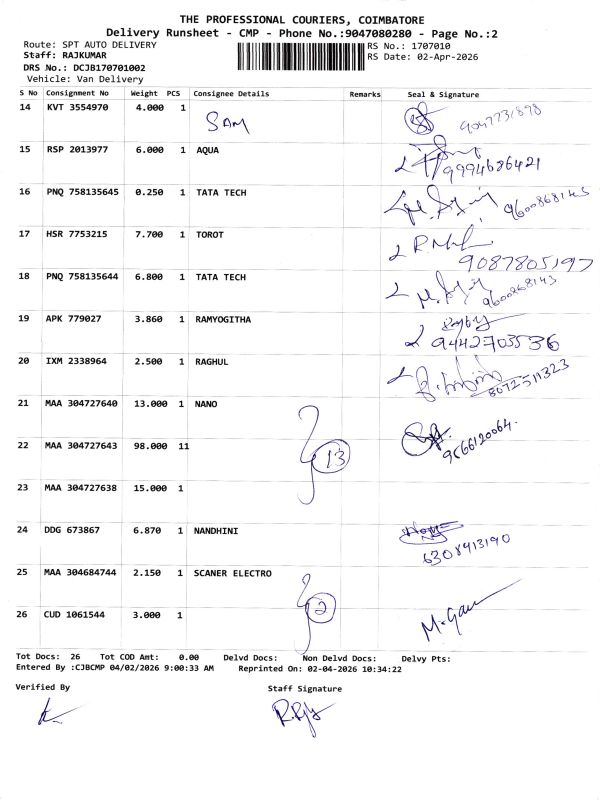 THE PROFESSIONAL COURIERS, COIMBATORE
Delivery Runsheet - CMP - Phone No.:9047080280 - Page No.:2
Route: SPT AUTO DELIVERY
RS No.: 1707010
Staff: RAJKUMAR
RS Date: 02-Apr-2026
DRS No.: DCJB170701002
Vehicle: Van Delivery
S No Consignment No Weight PCS Consignee Details Remarks Seal & Signature
14 KVT 3554970 4.000 1 SAM 9047731898
15 RSP 2013977 6.000 1 AQUA 9994686421
16 PNQ 758135645 0.250 1 TATA TECH 9600868143
17 HSR 7753215 7.700 1 TOROT 9087805197
18 PNQ 758135644 6.800 1 TATA TECH 9600268143
19 APK 779027 3.860 1 RAMYOGITHA 9442703536
20 IXM 2338964 2.500 1 RAGHUL
21 MAA 304727640 13.000 1 NANO
22 MAA 304727643 98.000 11 13 9566120064.
23 MAA 304727638 15.000 1
24 DDG 673867 6.870 1 NANDHINI 6308413190
25 MAA 304684744 2.150 1 SCANER ELECTRO 2
26 CUD 1061544 3.000 1
Tot Docs: 26 Tot COD Amt: 0.00 Delvd Docs: Non Delvd Docs: Delvy Pts:
Entered By :CJBCMP 04/02/2026 9:00:33 AM Reprinted On: 02-04-2026 10:34:22
Verified By Staff Signature